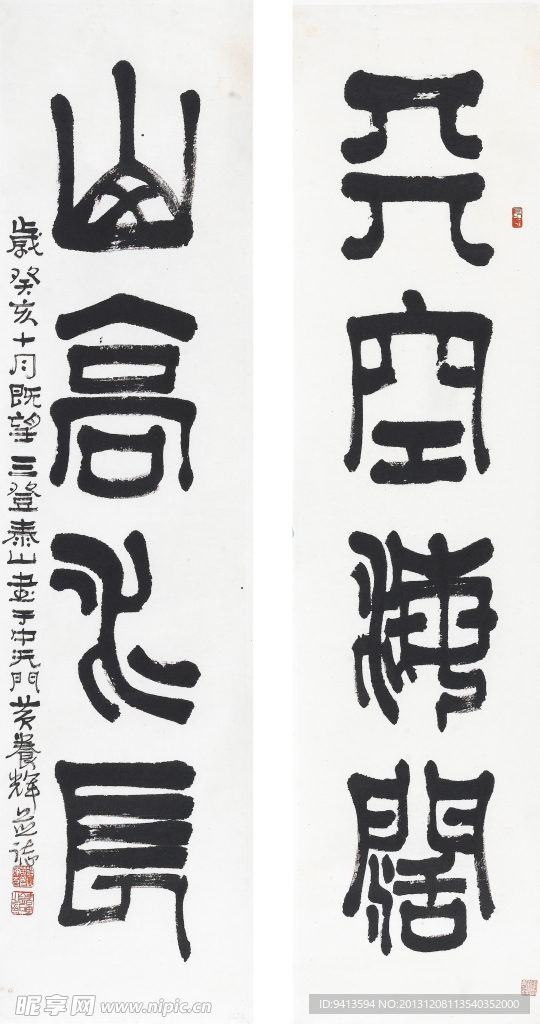 天空海闊
山高水長
歲癸亥十月既望三登泰山書于中天門黄養輝並誌
昵享网 www.nipic.cn
ID:9413594 NO:20131208113540352000